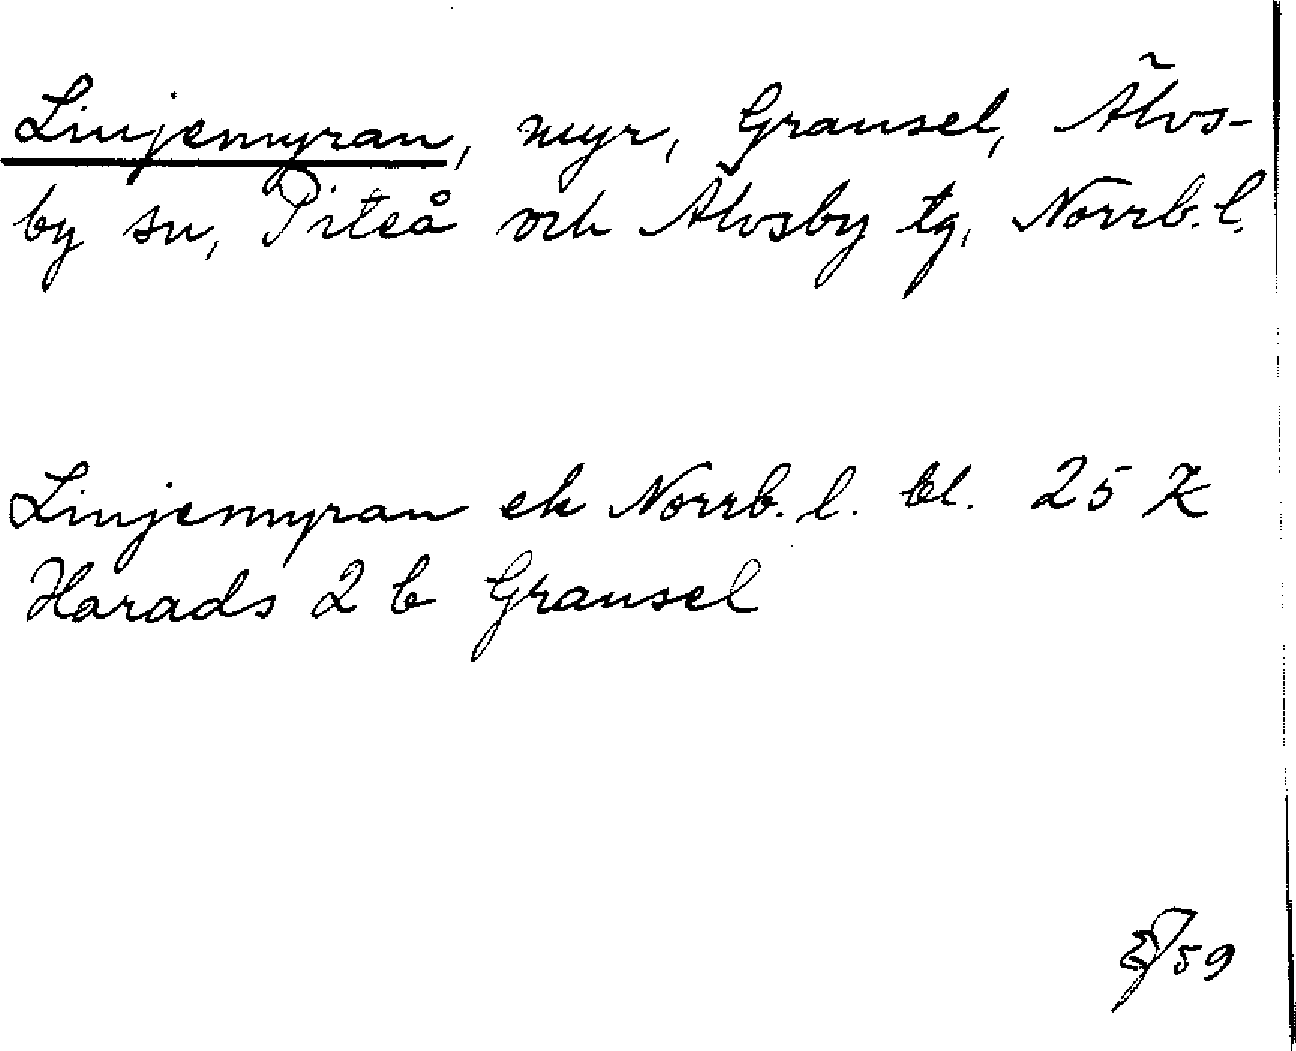 Linjemyran, myr, Gransel, Älvs-
by sn, Piteå och Älvsby tg, Norrb. l.
Linjemyran ek Norrb. l. bl. 25 K
Harads 2 b Gransel
59